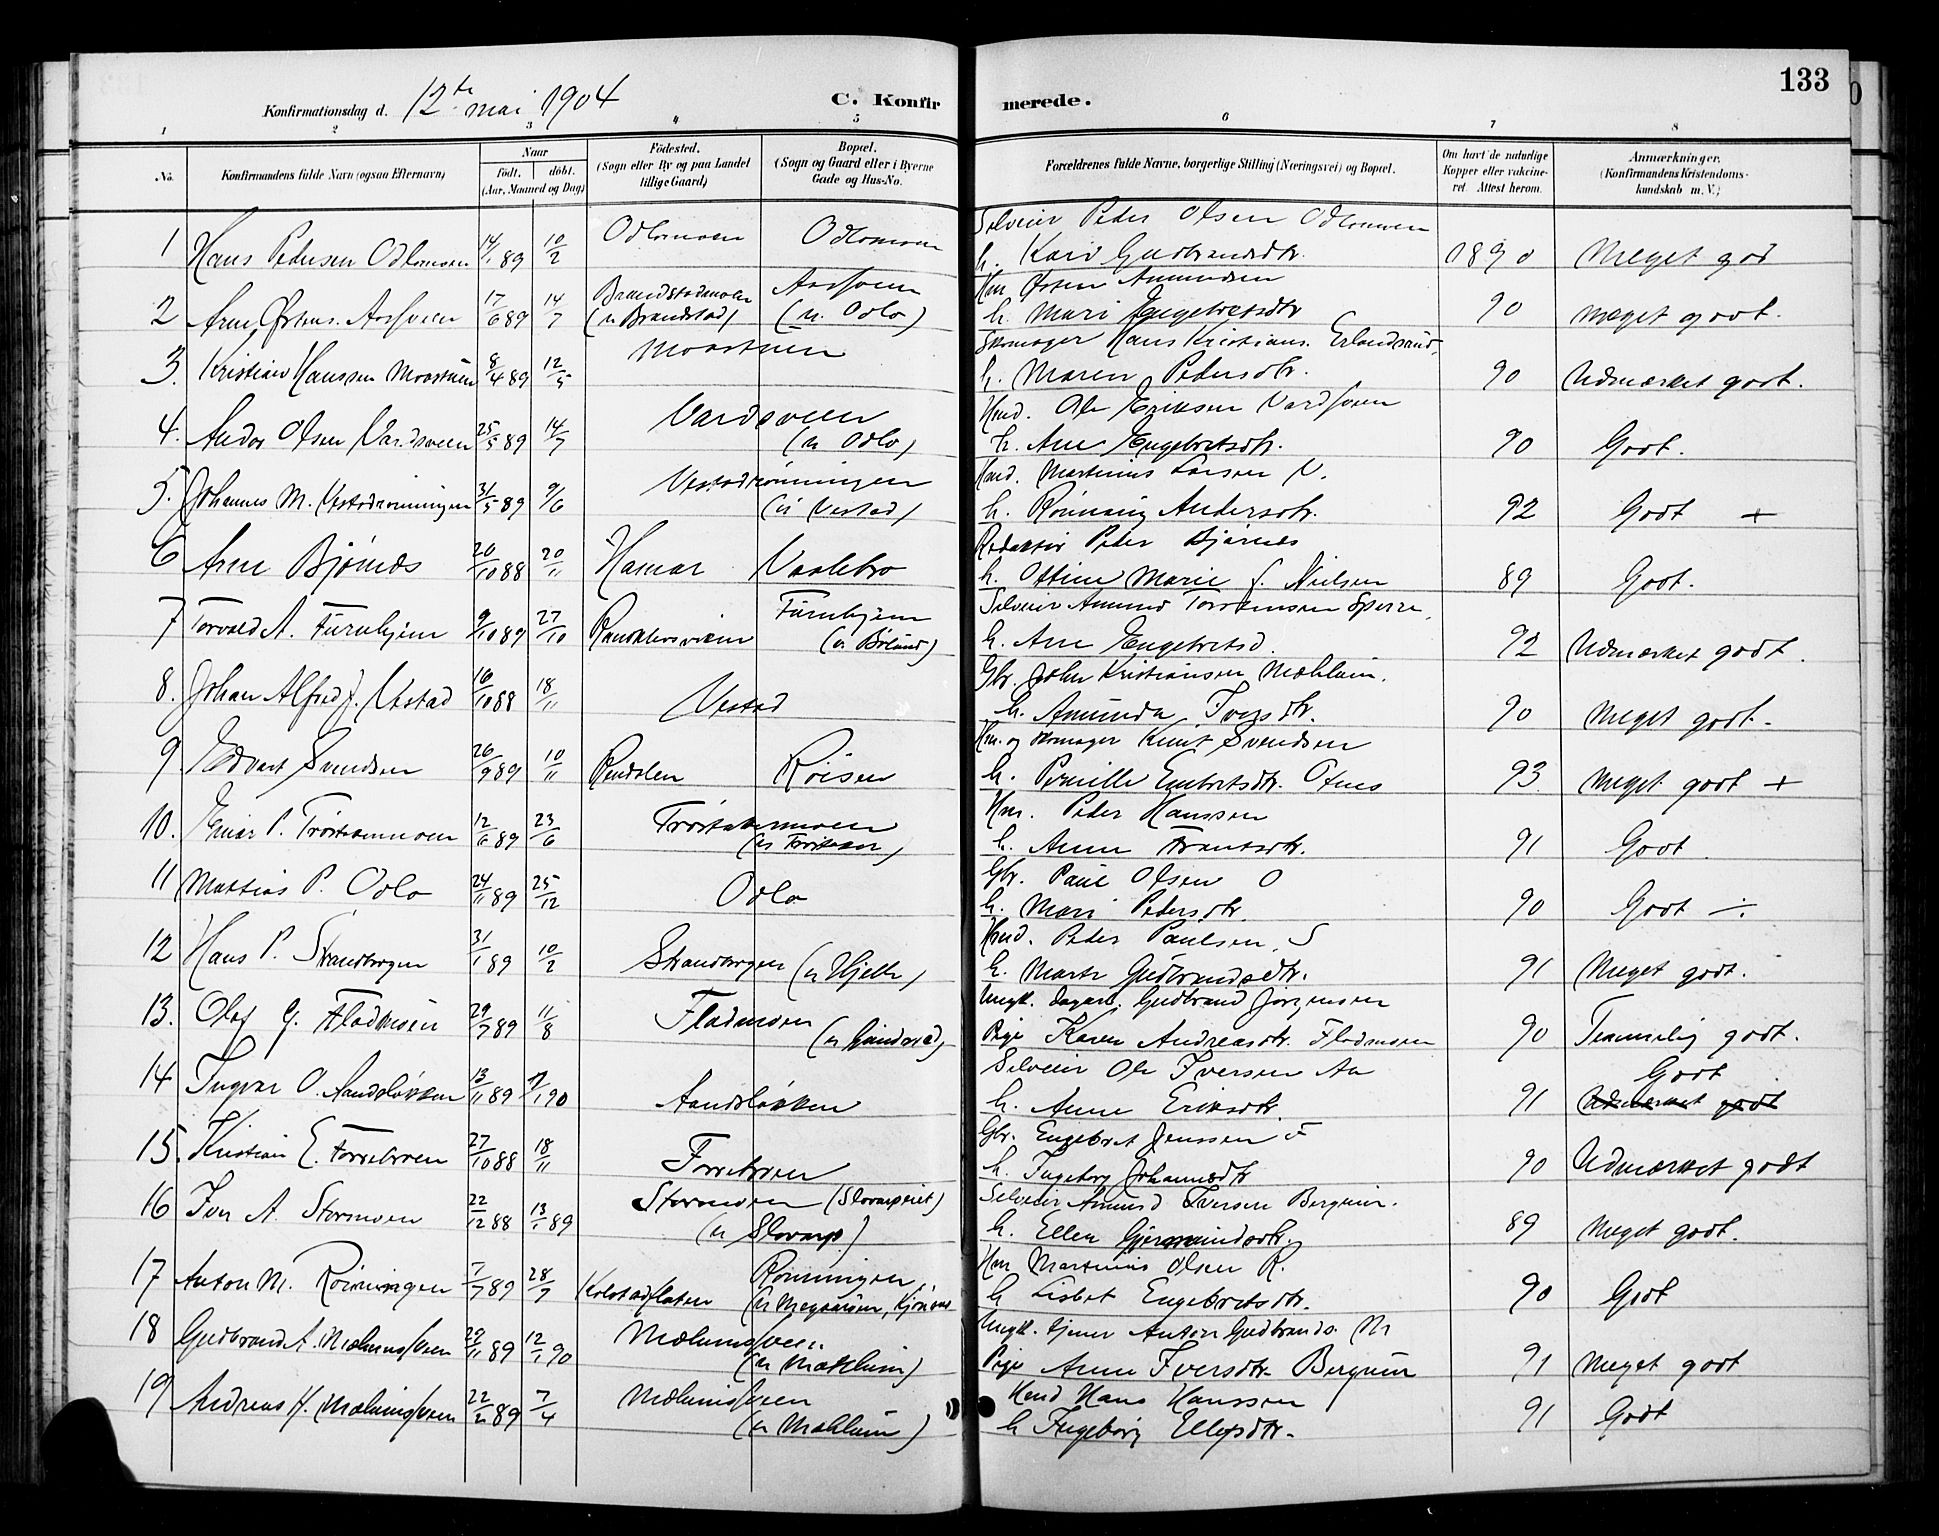 133
Konfirmationsdag d. 12te mai 1904
C. Konfirmerede.
1 2 3 4 5 6 7 8
No. Konfirmandens fulde Navn (ogsaa Efternavn)
Naar født. døbt. (Aar, Maaned og Dag)
Fødested. (Sogn eller By og paa Landet tillige Gaard)
Bopæl. (Sogn og Gaard eller i Byerne Gade og Hus-No.
Forældrenes fulde Navne, borgerlige Stilling (Næringsvei) og Bopæl.
Om havt de naturlige Kopper eller vakcineret. Attest herom.
Anmærkninger. (Konfirmandens Kristendomskundskab m. V.)
1 Hans Pedersen Odlomoen 14/1 89 10/2 Odlomoen Odlomoen Selveier Peder Olsen Odlomoen
h. Kari Gudbrandsdtr. 1890 Meget god
2 Arne Østens. Aassveen 17/6 89 14/7 Brandstadmoen (u Brandstad) Aassveen (u. Odlo) Hm Østen Amundsen
h. Mari Engebretsdtr 90 meget godt.
3. Kristian Hanssen Moastuen 8/4 89 12/5 Moastuen Skomager Hans Kristians. Erlandsund,
h. Maren Pedersdtr. 90 Udmærket godt.
4. Andor Olsen Vardsveen 25/5 89 14/7 Vardsveen (u Odlo) Hmd. Ole Eriksen Vardsveen
h. Ane Engebretsdtr. 90 Godt.
5. Johannes M. Vestadrønningen 31/5 89 9/6 Vestadrønningen (u Vestad) Hmd. Martinus Larsen V.
h. Rønnaug Andersdtr. 92 Godt +
6 Arne Bjørnæs 20/10 88 20/11 Hamar Vaalebro Redaktør Peder Bjørnæs
h. Ottine Marie f. Nielsen 89 Godt.
7 Torvald A. Furuhjem 9/10 89 27/10 Furuhjem (u Bølund) Selveier Amund Torstensen Sperre,
h. Ane Engebretsd. 92 Udmærket godt.
8. Johan Alfred J. Vestad 16/10 88 18/11 Vestad Gbr. John Kristiansen Mæhlum.
h. Amunda Iversdtr. 90 Meget godt.
9 Edvart Svendsen 26/9 89 10/11 Rendalen Røisen Hm. og skomager Knut Svendsen
h. Pernille Embretsdtr. 93. Meget godt +
10. Einar P. Trøstakermoen 12/6 89 23/6 Trøstakermoen Hm. Peder Hanssen
h. Anne Frantsdtr. 91 Godt
11 Mattias P. Odlo 24/11 89 25/12 Odlo Gbr. Paul Olsen O
h. Mari Pedersdtr. 90 Godt ÷
12 Hans P. Strandbogen 31/1 89 10/2 Strandbogen Hmd. Peder Paulsen, S
h. Marte Gudbrandsdtr. 91 Meget godt.
13. Olaf G. Fladmoen 29/7 89 11/8 Fladmoen Ungk. dagarb. Gudbrand Jørgensen
Pige Karen Andreasdtr. Fladmoen 90 Temmelig godt.
14 Ingvar O. Aandsløkken 13/11 89 90 Aandsløkken Selveier Ole Iversen Aa
h. Anne Eriksdtr 91 Godt Udmærket godt
15. Kristian E. Forrebroen 27/10 88 18/11 Forrebroen Gbr. Engebret Jenssen F
h. Ingeborg Johannesdtr 90 Udmærket godt
16 Iver A. Stormoen 22/12 88 13/1 89 Stormoen (u Slovarp) Selveier Amund Iversen Bergum.
h. Ellen 89 Meget godt.
17 Anton M. Rønningen 7/7 89 28/7 Kolstadflaten Rønningen Hm Martinus Olsen R.
h Lisbet Engebretsdtr. 90 Godt
18 Gudbrand A. Mælumssveen 29/11 89 12/1 90 Mælumssveen (u Mæhlum) Ungk. tjener Anton Gudbrands. M
Pige Anne Iversdtr. Bergum 91 Meget godt
19 Andreas H. Mælumssveen 22/2 89 7/4 Mælumssveen (u Mæhlum) Hmd Hans Hanssen
h Ingeborg 91 Godt